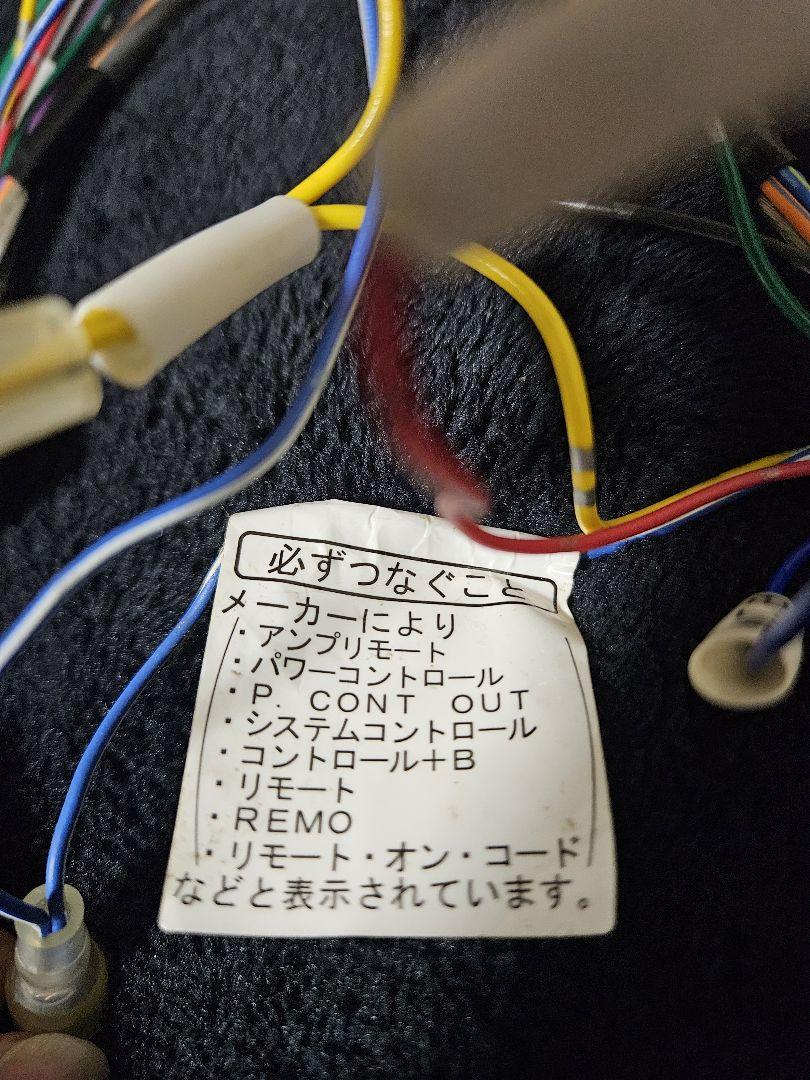 必ずつなぐこと
メーカーにより
・アンプリモート
・パワーコントロール
・P. CONT OUT
・システムコントロール
・コントロール+B
・リモート
・REMO
・リモート・オン・コード
などと表示されています。